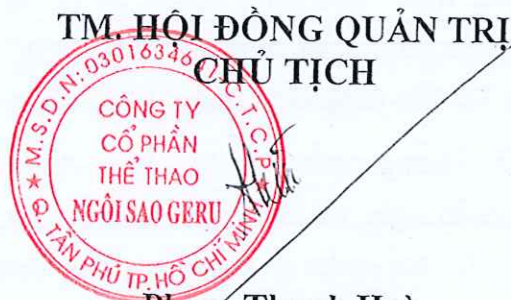 TM. HỘI ĐỒNG QUẢN TRỊ
CHỦ TỊCH
M.S.D.N: 03016346
C.T.C.P
CÔNG TY
CỔ PHẦN
THỂ THAO
NGÔI SAO GERU
Q. TÂN PHÚ TP. HỒ CHÍ MINH
Thanh